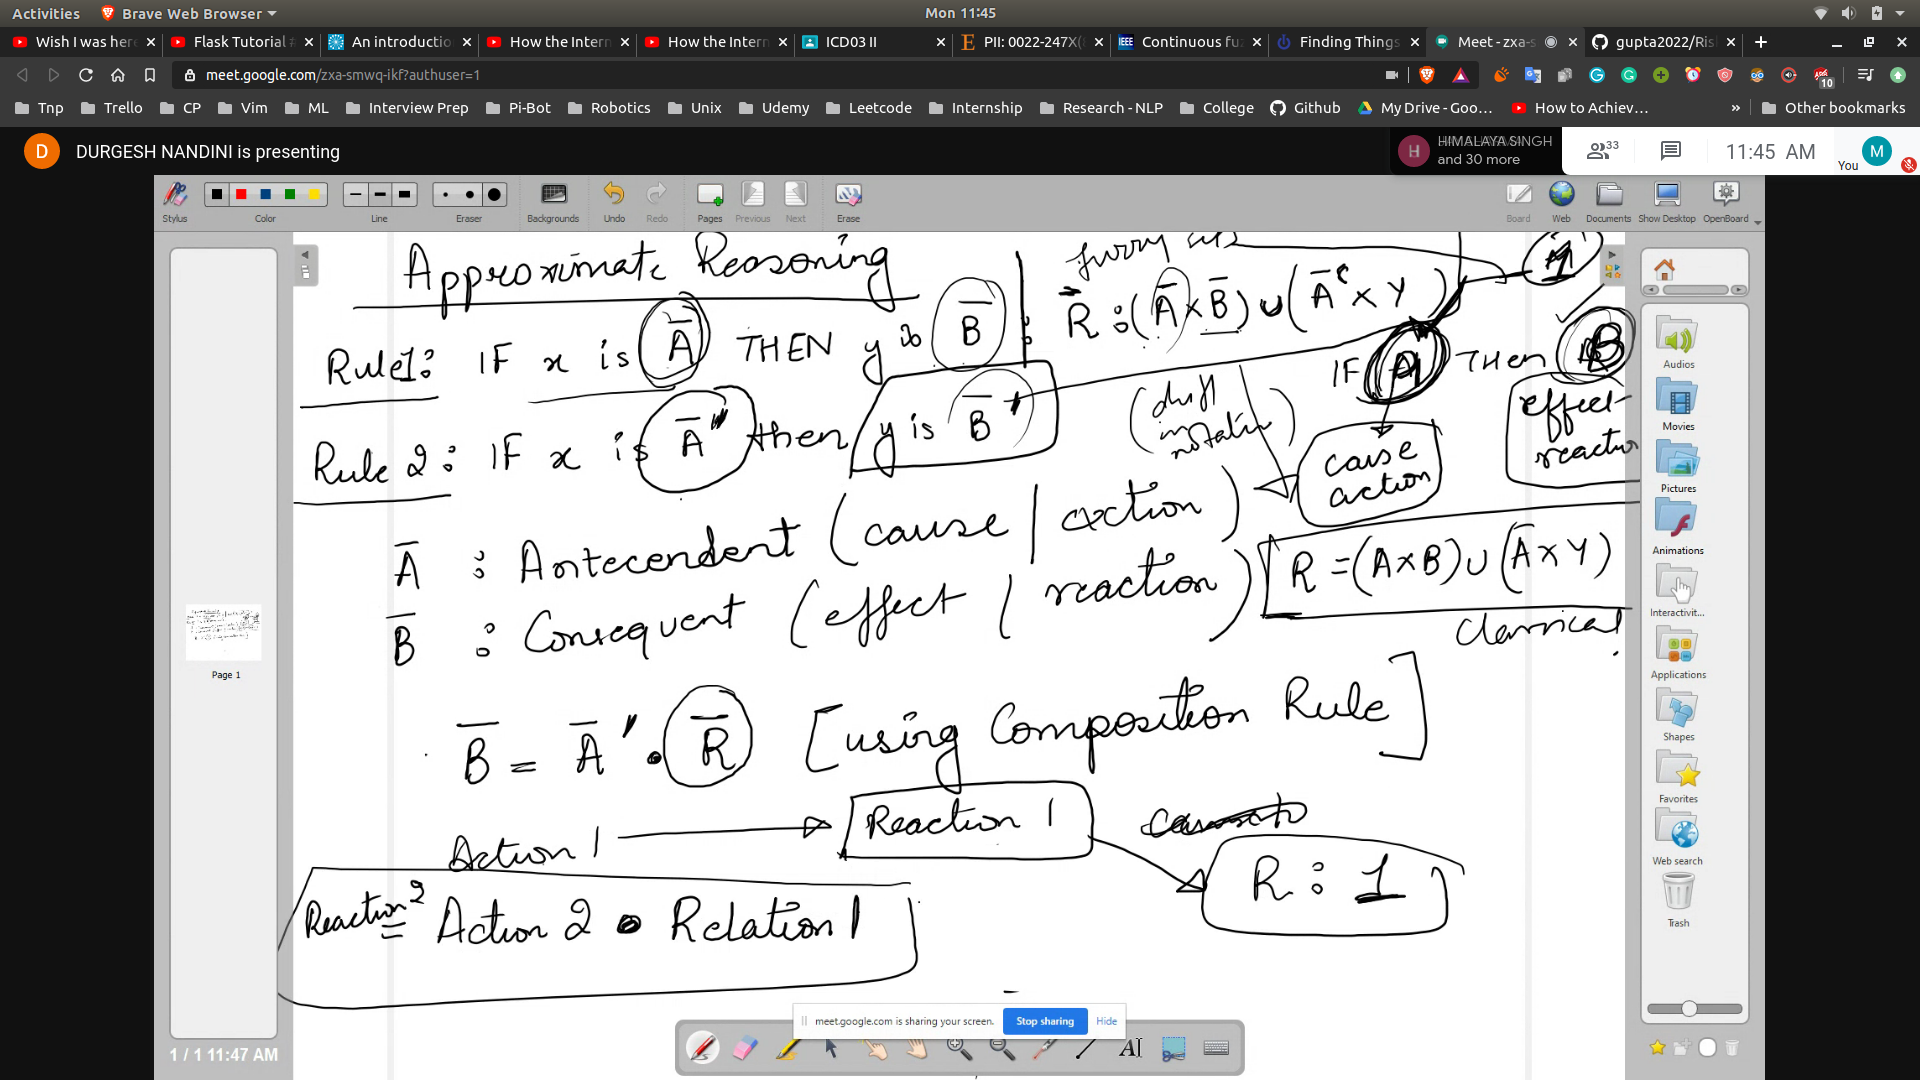 Activities Brave Web Browser Mon 11:45
Wish I was her Flask Tutorial # An introductio How the Intern How the Intern ICD03 II PII: 0022-247X( Continuous fu Finding Things Meet - zxa-s gupta2022/Ris
meet.google.com/zxa-smwq-ikf?authuser=1
10
Tnp Trello CP Vim ML Interview Prep Pi-Bot Robotics Unix Udemy Leetcode Internship Research - NLP College Github My Drive - Goo… How to Achiev… » Other bookmarks
D DURGESH NANDINI is presenting
H HIMALAYA SINGH
and 30 more
33
11:45 AM
You M
Stylus Color Line Eraser Backgrounds Undo Redo Pages Previous Next Erase Board Web Documents Show Desktop OpenBoard
Approximate Reasoning
R̄ : (Ā × B̄) ∪ (Āᶜ × Y)
Rule1: IF x is Ā THEN y is B̄ :
IF A THEN B
Rule 2: IF x is Ā' then y is B̄'
cause
action
effect
Ā : Antecendent (cause | action)
B̄ : Consequent (effect | reaction)
R = (A×B) ∪ (Ā×Y)
Classical
B̄ = Ā' • R̄ [using Composition Rule]
Action 1 Reaction 1
R : 1
Reaction 2 = Action 2 • Relation 1
Page 1
Audios
Movies
Pictures
Animations
Interactivit...
Applications
Shapes
Favorites
Web search
Trash
meet.google.com is sharing your screen. Stop sharing Hide
1 / 1 11:47 AM